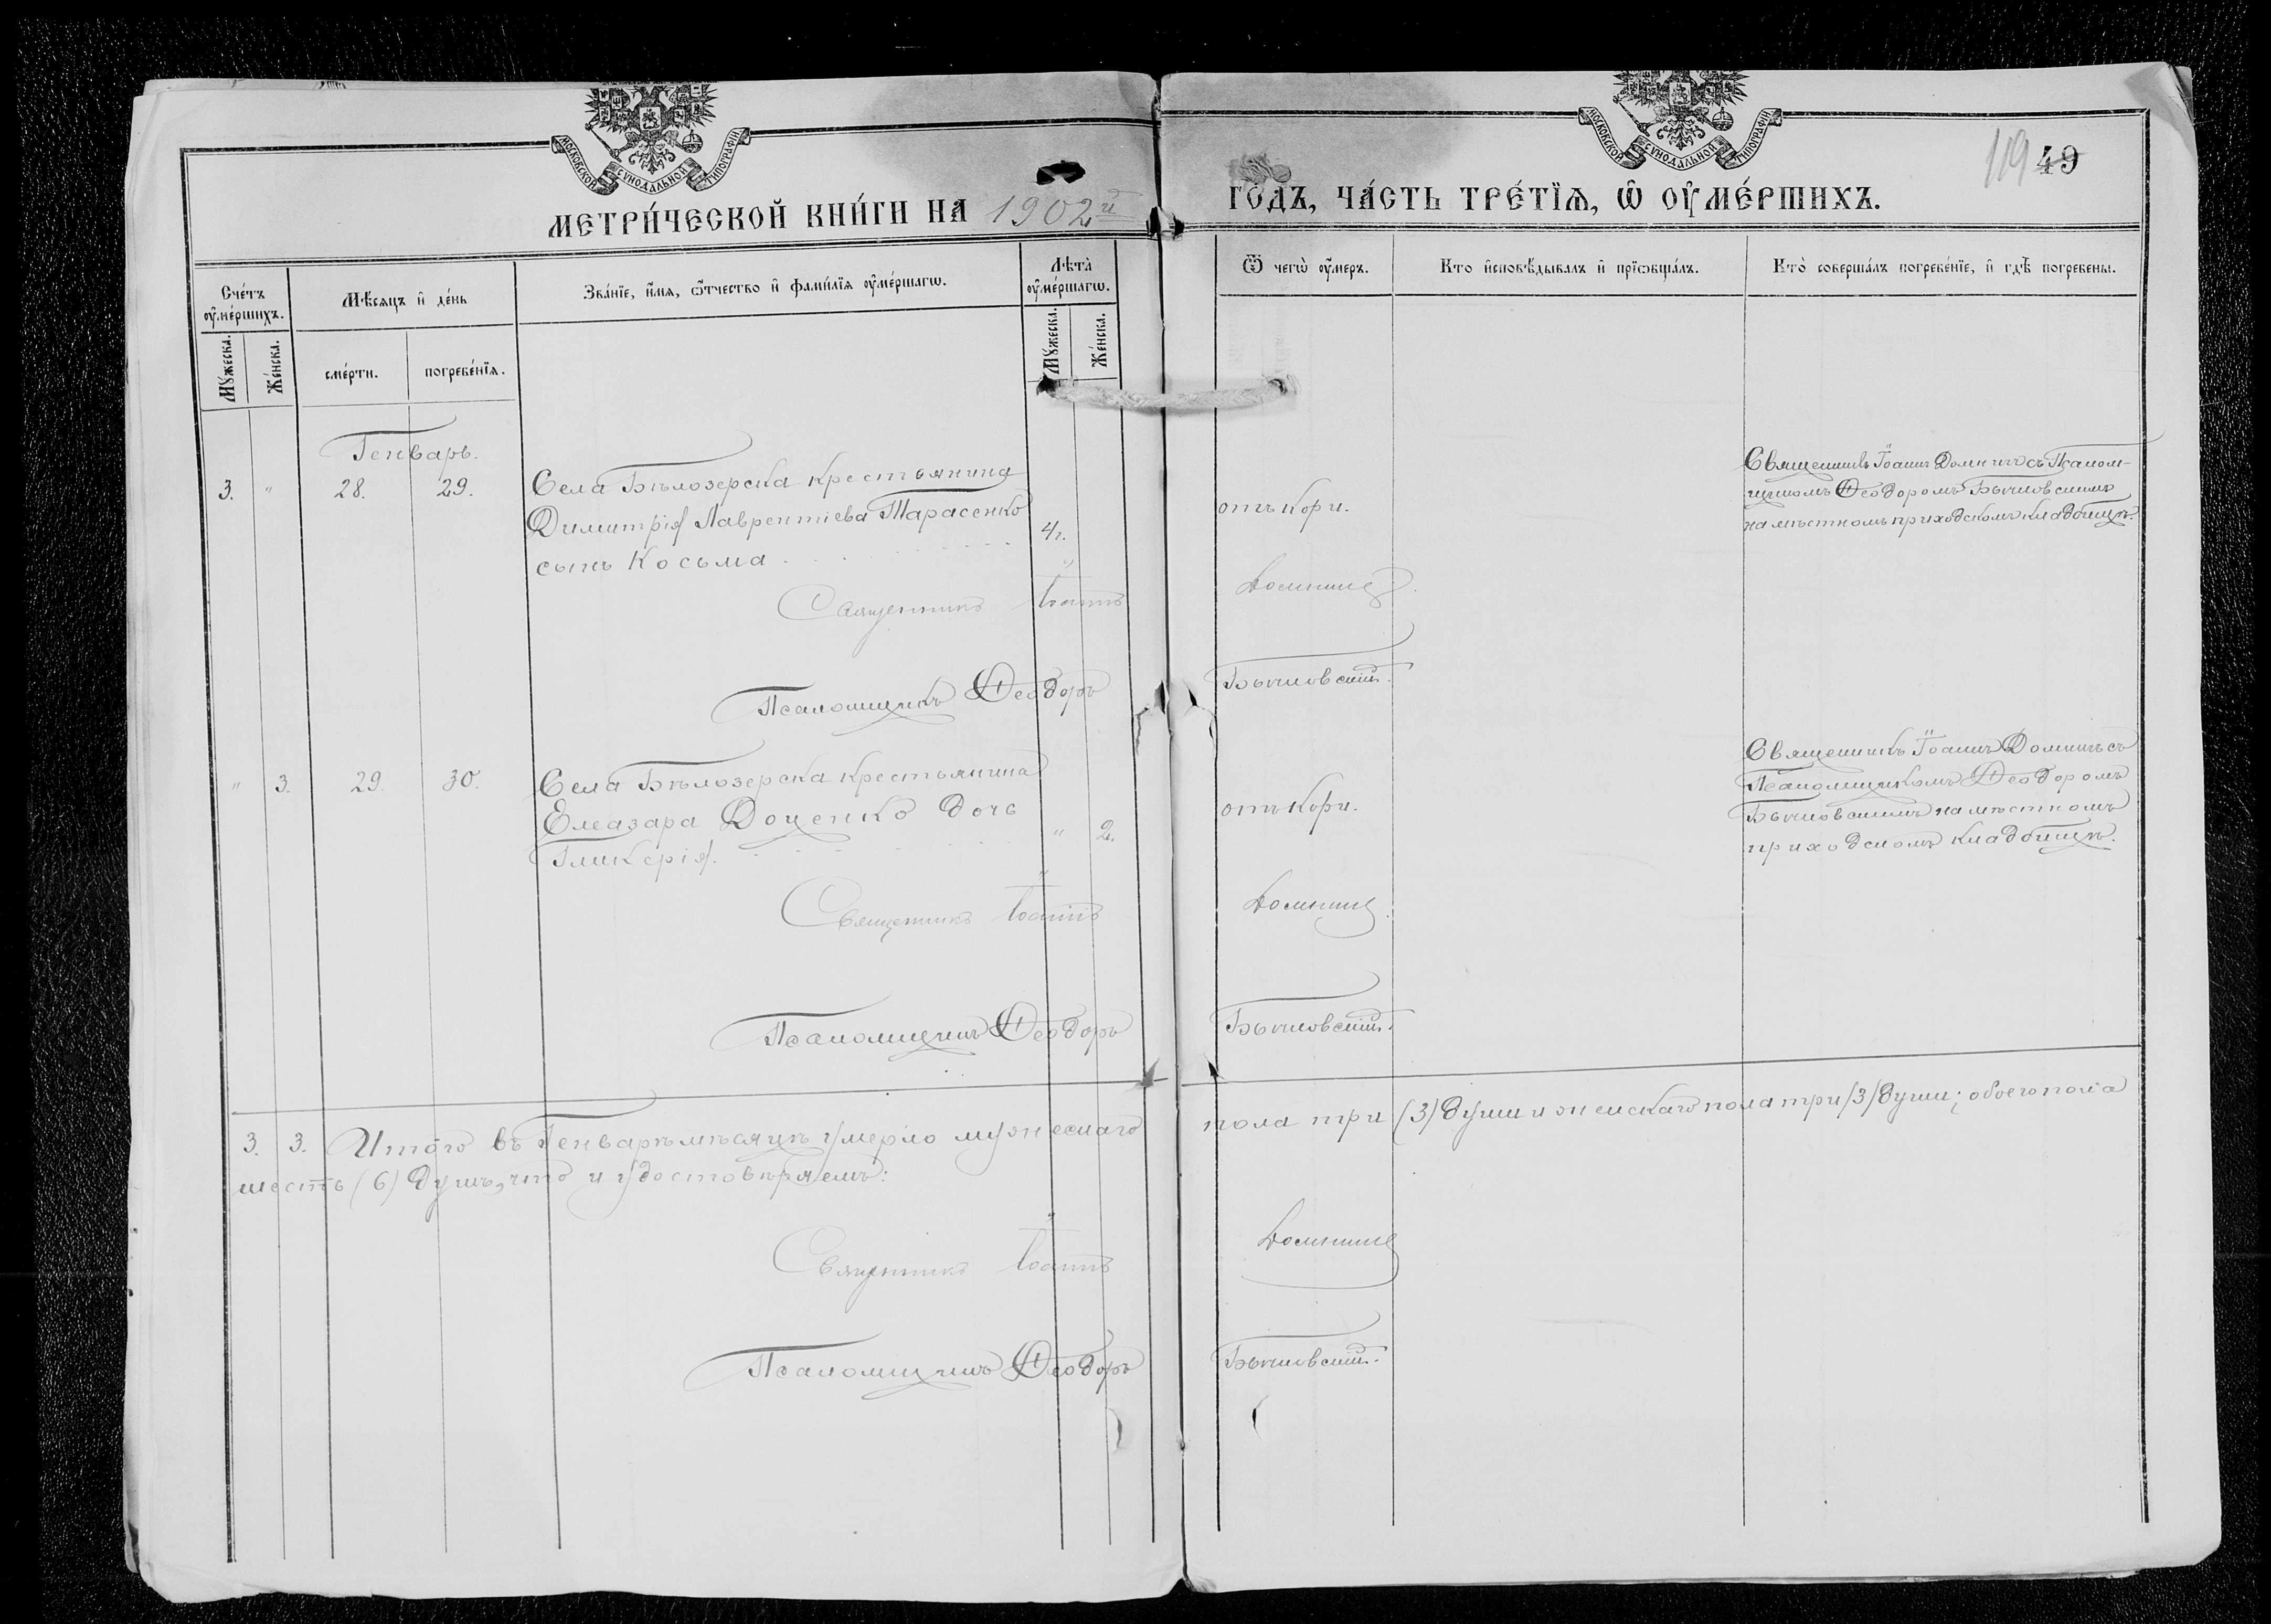 МОСКОВСКОЙ СѴНОДАЛЬНОЙ ТИПОГРАФІИ
МЕТРИ́ЧЕСКОЙ КНИ́ГИ НА 1902й
Сче́тъ ᲂу҆ме́ршихъ.
Мѣ́сяцъ и҆ де́нь
Зва́нїе, и҆́мя, ѻ҆́тчество и҆ фами́лїя ᲂу҆ме́ршагѡ.
Лѣ́та ᲂу҆ме́ршагѡ.
Мꙋ́жеска.
Же́нска.
сме́рти.
погребе́нїя.
Мꙋ́жеска.
Же́нска.
Генварь.
3. " 28. 29. Села Бѣлозерска крестьянина
Димитрія Лаврентіева Тарасенко
сынъ Косьма 4г.
Священникъ Іоаннъ
Псаломщикъ Ѳеодоръ
" 3. 29. 30. Села Бѣлозерска крестьянина
Елеазара Доценко дочь
Гликерія. " 2.
Священникъ Іоаннъ
Псаломщикъ Ѳеодоръ
3. 3. Итого въ Генварѣ мѣсяцѣ умерло мужескаго
шесть (6) душъ, что и удостовѣряемъ:
Священникъ Іоаннъ
Псаломщикъ Ѳеодоръ
МОСКОВСКОЙ СѴНОДАЛЬНОЙ ТИПОГРАФІИ
119 49
ГОДЪ, ЧА́СТЬ ТРЕ́ТЇЯ, Ѡ҆ ОУ҆МЕ́РШИХЪ.
Ѿ чегѡ̀ ᲂу҆́меръ.
Кто̀ и҆сповѣ́дывалъ и҆ прїѡбща́лъ.
Кто̀ соверша́лъ погребе́нїе, и҆ гдѣ̀ погребены.
отъ кори.
Священникъ Іоаннъ Домничъ съ Псалом-
щикомъ Ѳеодоромъ Бычковскимъ
на мѣстномъ приходскомъ кладбищѣ.
Бычковскій.
отъ кори.
Священникъ Іоаннъ Домничъ съ
Псаломщикомъ Ѳеодоромъ
Бычковскимъ на мѣстномъ
приходскомъ кладбищѣ.
Бычковскій.
пола три (3) души и женскаго пола три (3) души; обоего пола
Бычковскій.